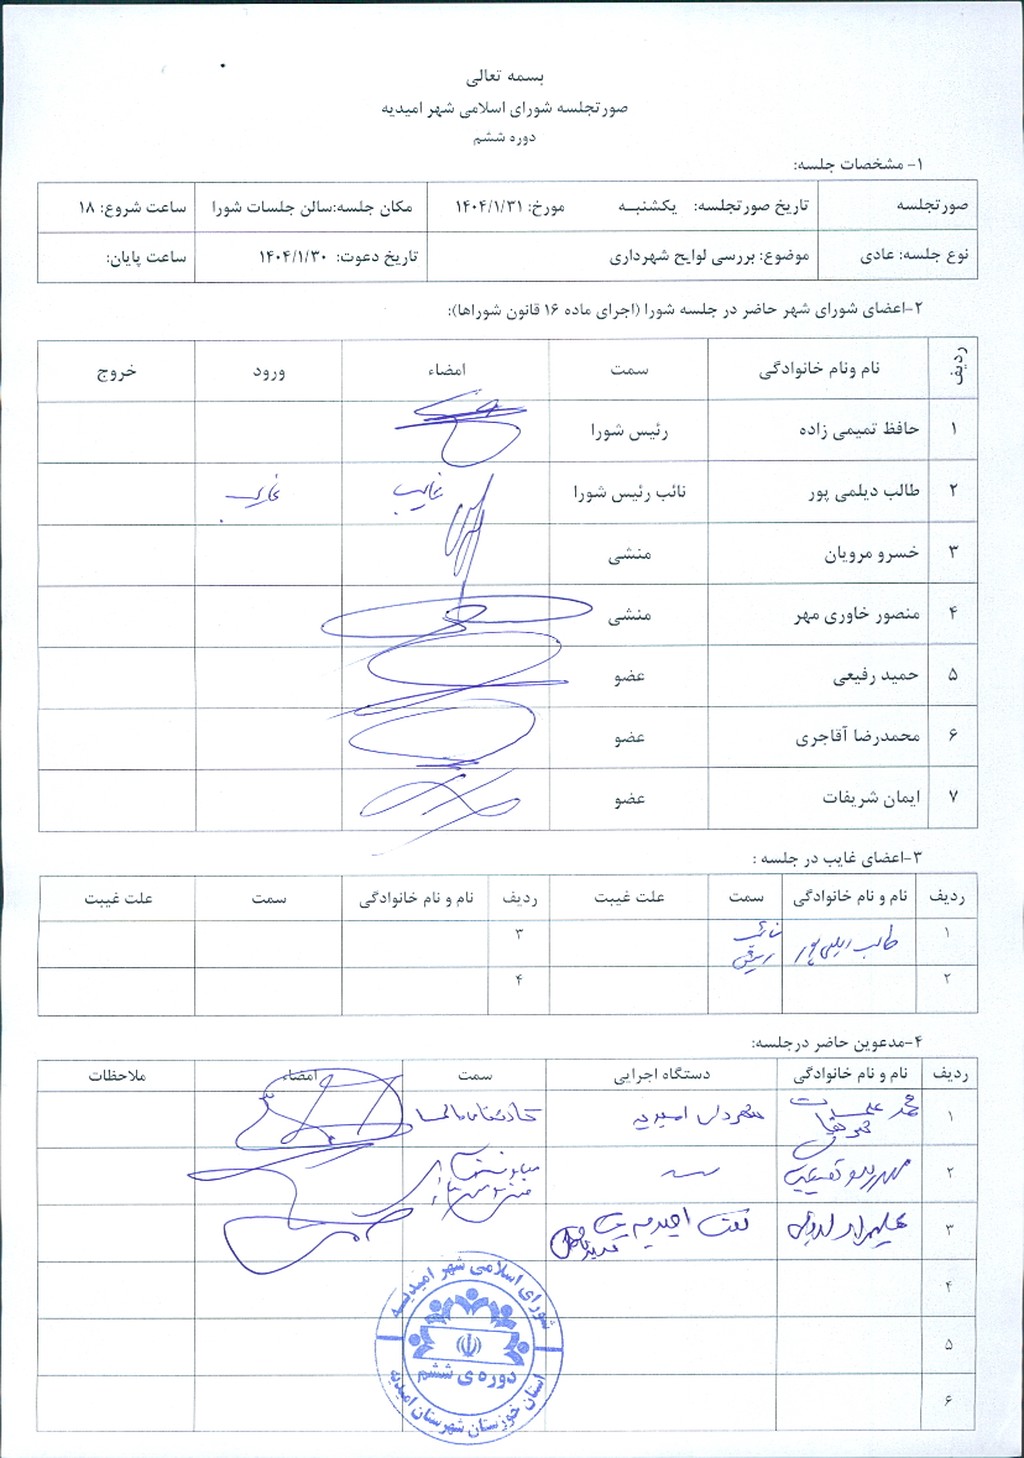 بسمه تعالی
صورتجلسه شورای اسلامی شهر امیدیه
دوره ششم
۱- مشخصات جلسه:
صورتجلسه تاریخ صورتجلسه: یکشنبـه مورخ: ۱۴۰۴/۱/۳۱ مکان جلسه:سالن جلسات شورا ساعت شروع: ۱۸
نوع جلسه: عادی موضوع: بررسی لوایح شهرداری تاریخ دعوت: ۱۴۰۴/۱/۳۰ ساعت پایان:
۲-اعضای شورای شهر حاضر در جلسه شورا (اجرای ماده ۱۶ قانون شوراها):
ردیف نام ونام خانوادگی سمت امضاء ورود خروج
۱ حافظ تمیمی زاده رئیس شورا
۲ طالب دیلمی پور نائب رئیس شورا غایب غایب
۳ خسرو مرویان منشی
۴ منصور خاوری مهر منشی
۵ حمید رفیعی عضو
۶ محمدرضا آقاجری عضو
۷ ایمان شریفات عضو
۳-اعضای غایب در جلسه :
ردیف نام و نام خانوادگی سمت علت غیبت ردیف نام و نام خانوادگی سمت علت غیبت
۱ طالب دیلمی پور نائب رئیس ۳
۲ ۴
۴-مدعوین حاضر درجلسه:
ردیف نام و نام خانوادگی دستگاه اجرایی سمت امضاء ملاحظات
۱ محمد شهرداری امیدیه
۲
۳ نفت
۴
۵
۶
شورای اسلامی شهر امیدیـه
دوره ی ششم
استان خوزستان شهرستان امیدیه